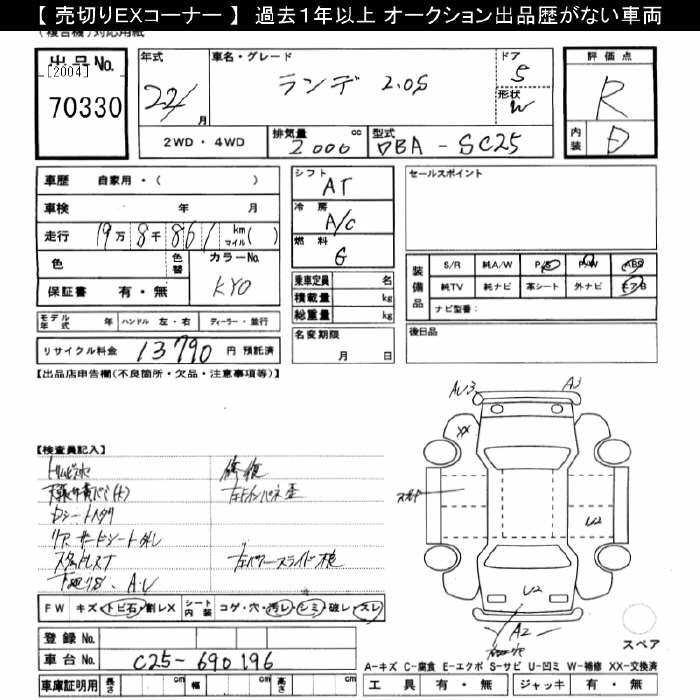 【 売切りEXコーナー 】 過去１年以上 オークション出品歴がない車両
(複合機)対応用紙
出品No.
[2004]
70330
年式
22/
月
車名・グレード
ランデ 2.0S
ドア
5
形状
W
評価点
R
内装
D
2WD ・ 4WD
排気量 cc
2000
型式
DBA - SC25
車歴 自家用・( )
車検 年 月
走行 19万 8千 861 km マイル( )
色 色替 カラーNo.
KY0
保証書 有・無
モデル年式 年 ハンドル 左・右 ディーラー・並行
リサイクル料金 13790 円 預託済
シフト
AT
冷房
A/C
燃料
G
乗車定員 名
積載量 kg
総重量 kg
名変期限
月 日
セールスポイント
装備品
S/R 純A/W P/S P/W ABS
純TV 純ナビ 革シート 外ナビ エアB
ナビ型番:
後日品
【出品店申告欄(不良箇所・欠品・注意事項等)】
【検査員記入】
修復
AU3
A3
XX
U2
U2
A2
FW キズ・トビ石・割レX シート内装 コゲ・穴・汚レ・シミ・破レ・スレ
スペア
登録 No.
車台 No. C25-690196
A-キズ C-腐食 E-エクボ S-サビ U-凹ミ W-補修 XX-交換済
車庫証明用 長さ cm 幅 cm 高さ cm
工具 有・無 ジャッキ 有・無